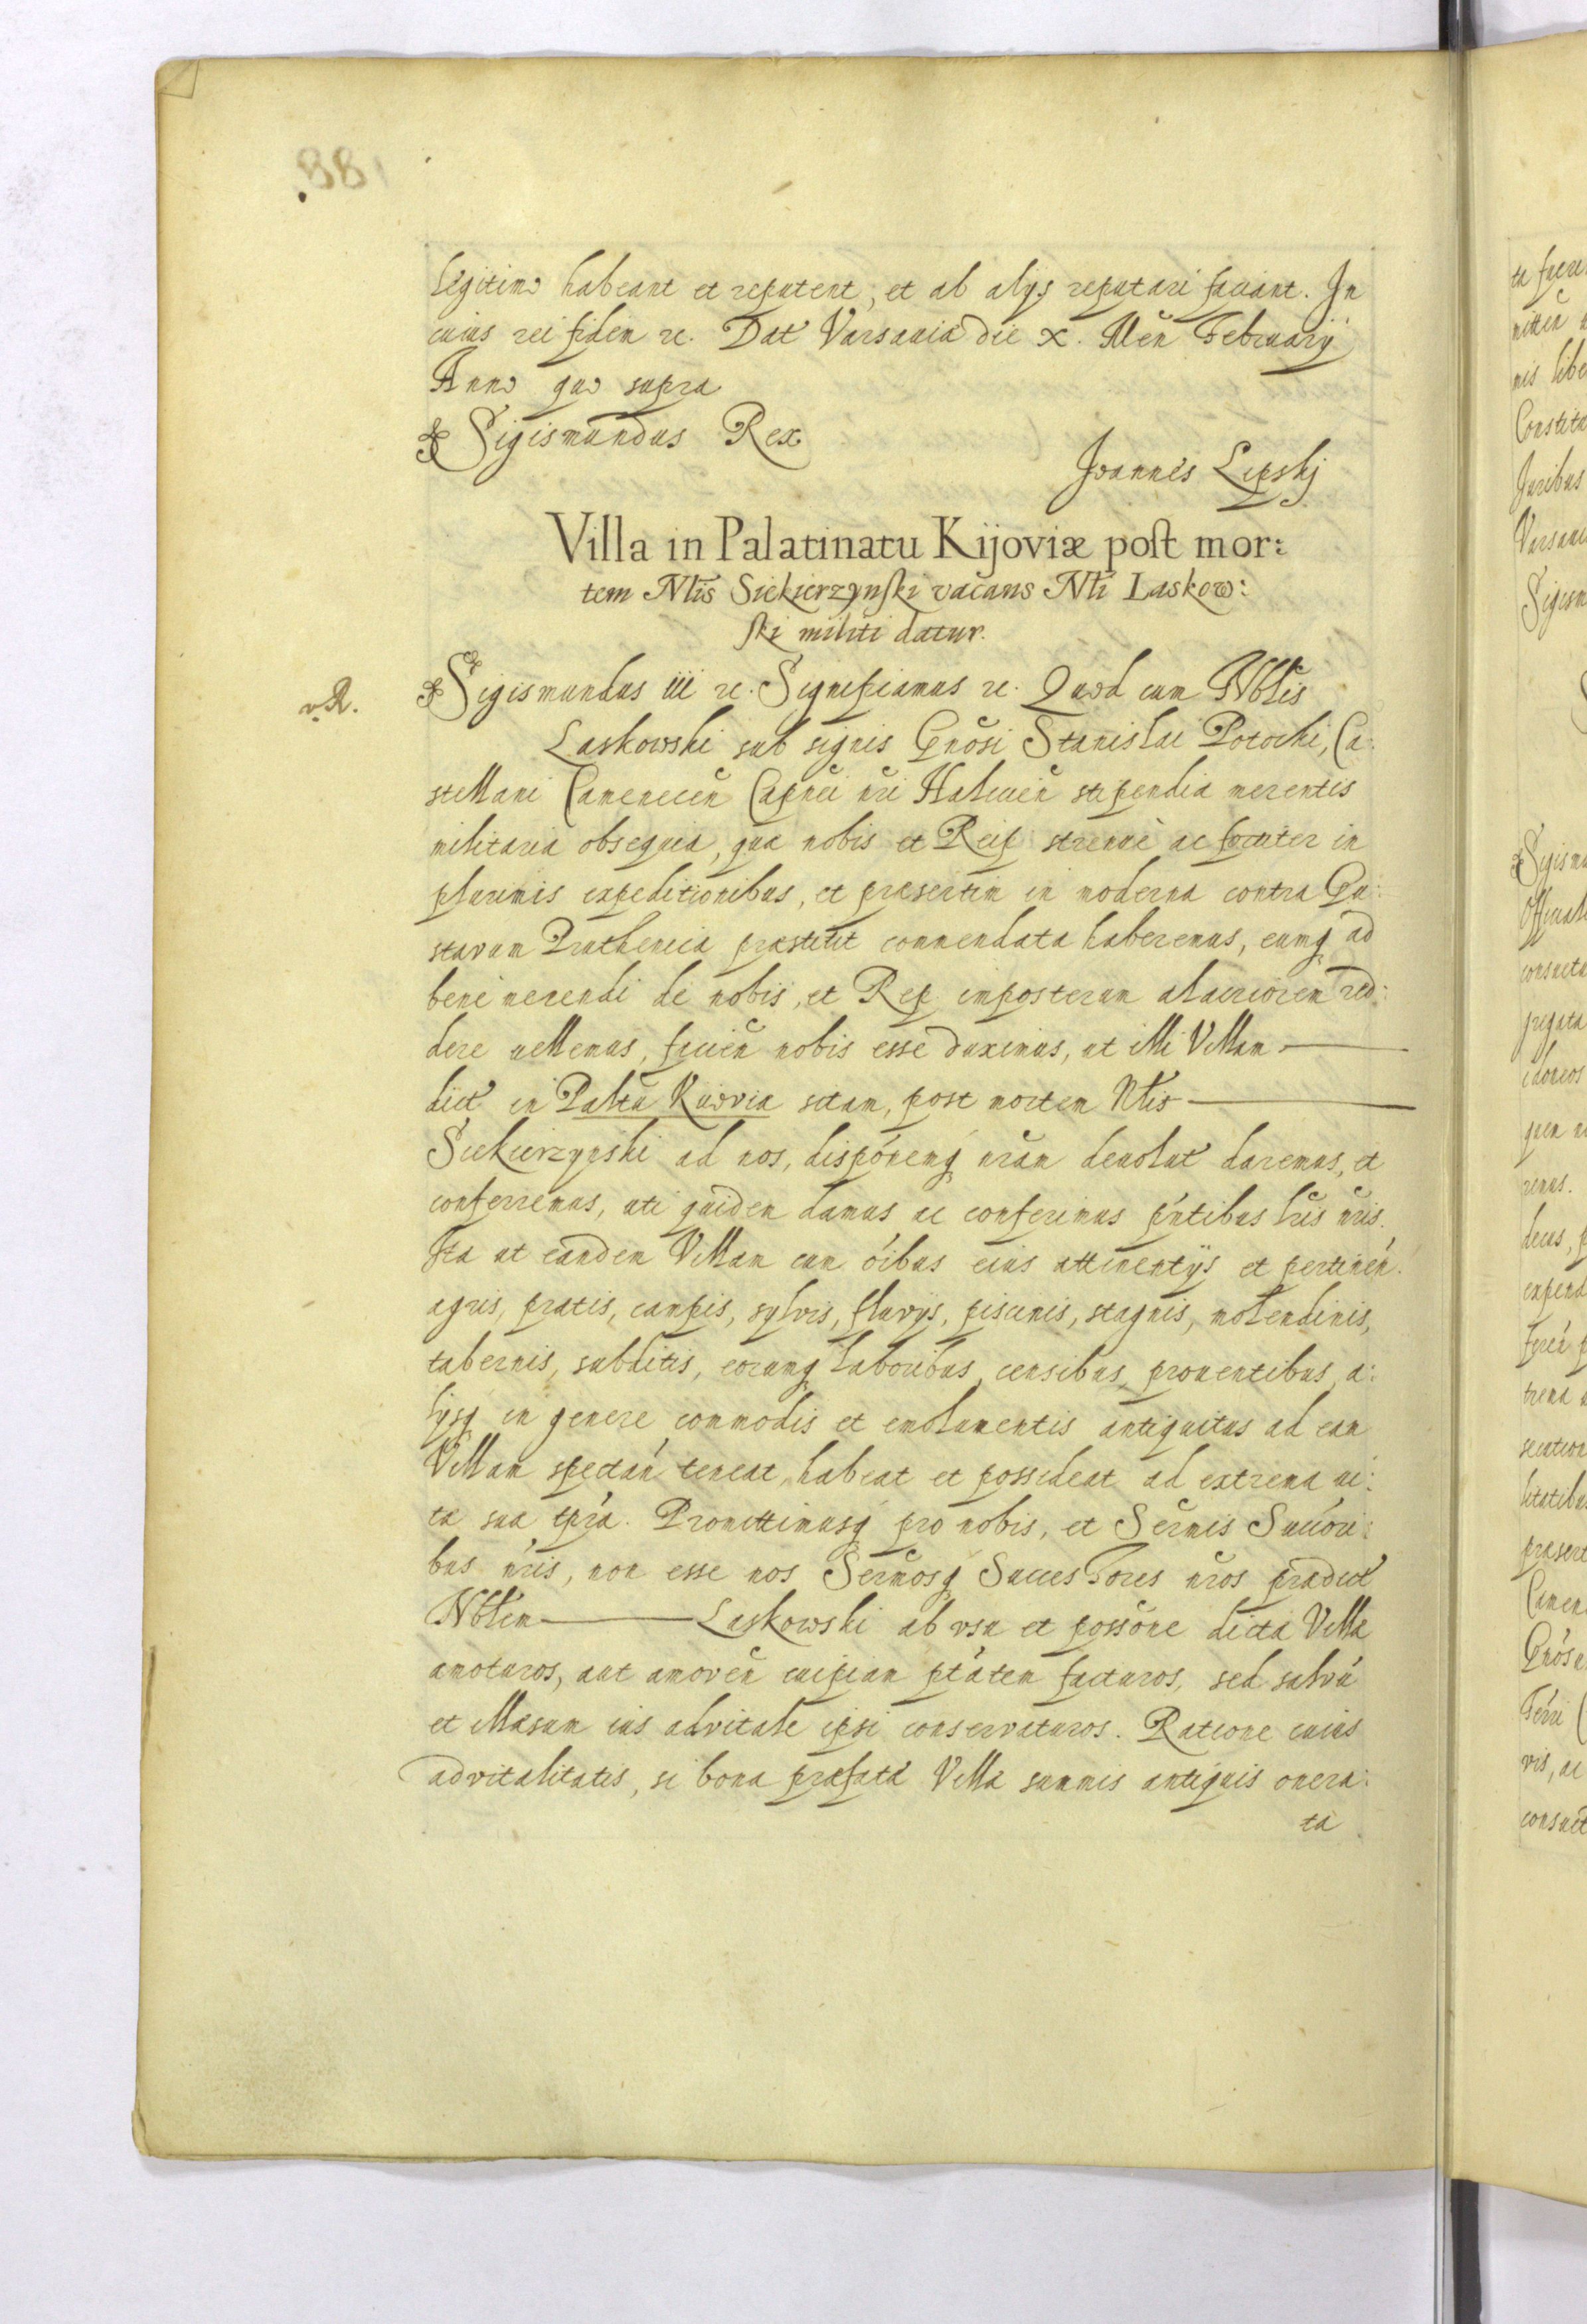 188
legitimo habeant et reputent, et ab alijs reputari faciant. In
cuius rei fidem rc. Dat Varsauiæ die X. Men Februarij
Anno quo supra
Sigismundus Rex
Joannes Lipskj
Villa in Palatinatu Kijoviæ post mor:
tem Nlis Siekierzynski vacans Nli Laskow:
ski militi datur.
v. R.
Sigismundus iii rc. Significamus rc. Quod cum Nblis
Laskowski sub signis Gnosi Stanislai Potocki, Ca:
stellani Camenecen Capnei nri Halicien stipendia merentis
militaria obsequia, quæ nobis et Reip strenuè ac fortiter in
plurimis expeditionibus, et præsertim in moderna contra Gu:
stavum Pruthenica præstitit commendata haberemus, eumq ad
bene merendi de nobis, et Rep. imposterum alacriorem red:
dere uellemus, facien nobis esse duximus, ut illi Villam
dict in Paltu Kiiovia sitam, post mortem Nlis
Siekierzynski ad nos, disponemq nram deuolut daremus, et
conferremus, uti quidem damus ac conferimus pntibus lris nris.
Ita ut eandem Villam cum oibus eius attinentijs et pertinen.
agris, pratis, campis, sylvis, fluvijs, piscinis, stagnis, molendinis,
tabernis, subditis, eorumq laboribus, censibus, prouentibus, a:
lijsq in genere commodis et emolumentis antiquitus ad eam
Villam spectan teneat, habeat et possideat ad extrema ui:
tæ suæ tpra. Promittimusq pro nobis, et Sermis Succori:
bus nris, non esse nos Sermosq Successores nros prædict
Nblem Laskowski ab vsu et possone dictæ Villæ
amoturos, aut amoven cuipiam ptatem facturos, sed salvu
et illæsum ius advitale ipsi conservaturos. Ratione cuius
advitalitatis, si bona præfatæ Villæ summis antiquis onera:
ta